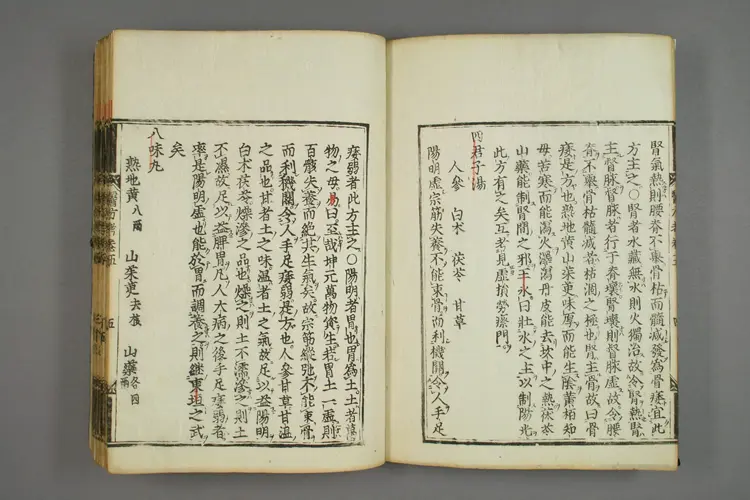 腎氣熱則腰脊不舉骨枯而髓減發為骨痿宜此
方主之○腎者水藏無水則火獨治故令腎熱腎
主督脉督脉者行于脊壞腎則督脉虛故令腰
脊不舉骨枯髓減者枯涸之極也腎主骨故曰骨
痿是方也熟地黃山茱萸味厚而能生陰黃栢知
母苦寒而能瀉火澤瀉丹皮能去坎中之熱茯苓
山藥能制腎間之邪王冰曰壯水之主以制陽光
此方有之矣互考見虛損勞瘵門
四君子湯
人參 白朮 茯苓 甘草
陽明虛宗筋失養不能束骨而利機關令人手足
痿弱者此方主之○陽明者胃也胃為土土者萬
物之母易曰至哉坤元萬物資生若胃土一虛則
百骸失養而絕其生氣矣故宗筋縱弛不能束骨
而利機關令人手足痿弱是方也人參甘草甘溫
之品也甘者土之味溫者土之氣故足以益陽明
白朮茯苓燥滲之品也燥之則土不濡滲之則土
不濕故足以益脾胃凡人大病之後手足痿弱者
率是陽明虛也能於胃而調養之則繼東垣之武
矣
八味丸
熟地黃八兩 山茱萸去核 山藥各四兩
醫方考卷五
五